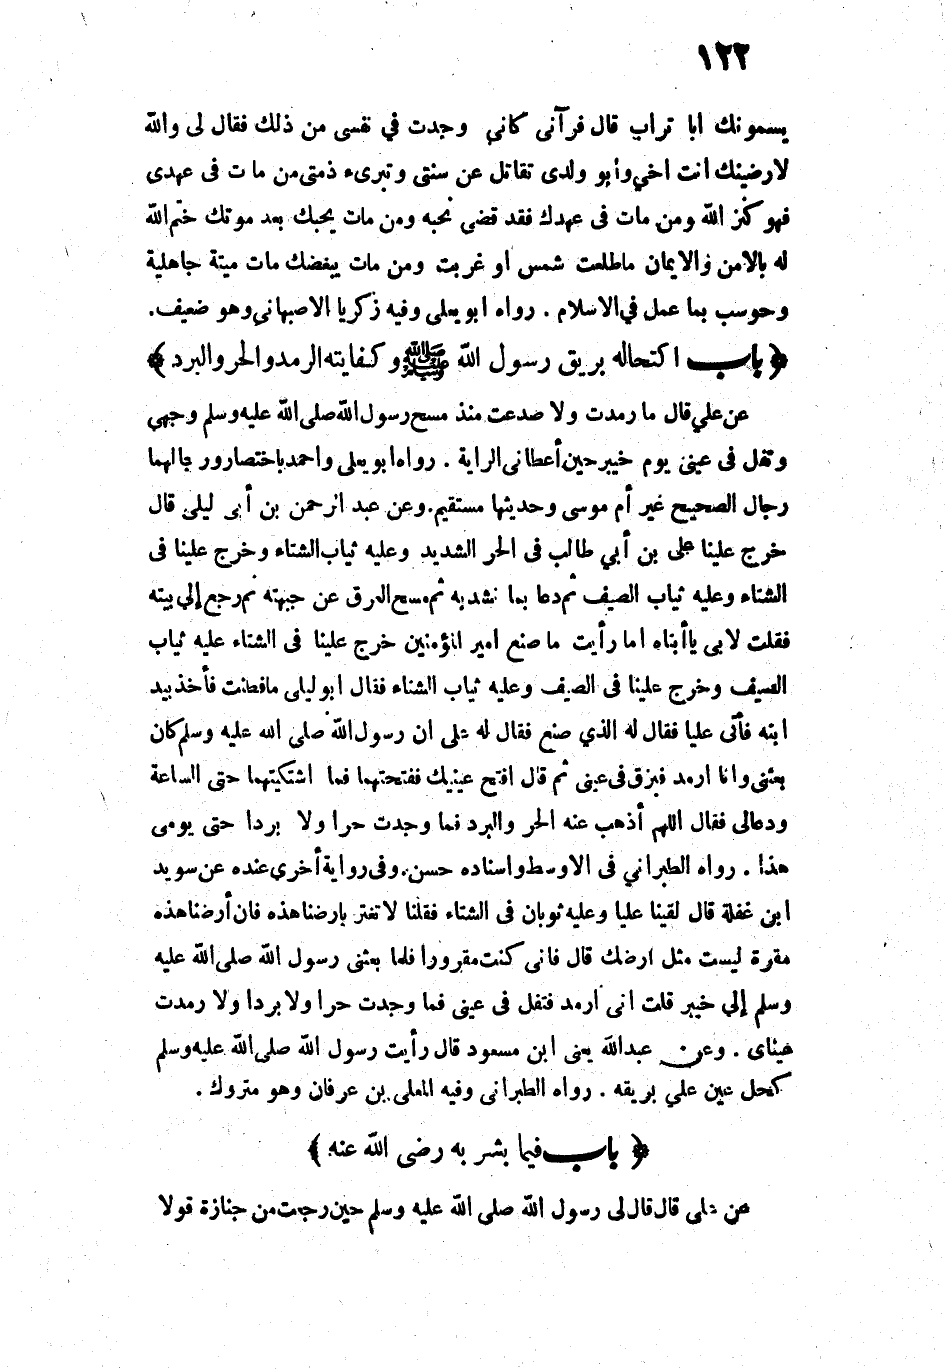 ١٢٢
يسمونك ابا تراب قال فرآنى كاني وجدت في نفسى من ذلك فقال لى والله
لارضينك انت اخي وأبو ولدى تقاتل عن سنتى وتبرىء ذمتى من مات فى عهدى
فهو كنز الله ومن مات فى عهدك فقد قضى نحبه ومن مات يحبك بعد موتك ختم الله
له بالامن والايمان ماطلعت شمس او غربت ومن مات يبغضك مات ميتة جاهلية
وحوسب بما عمل في الاسلام . رواه ابو يعلى وفيه زكريا الاصبهاني وهو ضعيف.
﴿ باب اكتحاله بريق رسول الله ﷺ وكفايته الرمد والحر والبرد ﴾
عن علي قال ما رمدت ولا صدعت منذ مسح رسول الله صلى الله عليه وسلم وجهي
وتفل فى عينى يوم خيبر حين أعطانى الراية . رواه ابو يعلى واحمد باختصار ورجالهما
رجال الصحيح غير أم موسى وحديثها مستقيم. وعن عبد الرحمن بن أبى ليلى قال
خرج علينا على بن أبي طالب فى الحر الشديد وعليه ثياب الشتاء وخرج علينا فى
الشتاء وعليه ثياب الصيف ثم دعا بماء فشربه ثم مسح العرق عن جبهته ثم رجع إلي بيته
فقلت لابى ياأبتاه اما رأيت ما صنع امير المؤمنين خرج علينا فى الشتاء عليه ثياب
الصيف وخرج علينا فى الصيف وعليه ثياب الشتاء فقال ابو ليلى مافطنت فأخذ بيد
ابنه فأتى عليا فقال له الذي صنع فقال له على ان رسول الله صلى الله عليه وسلم كان
بعثنى وانا ارمد فبزق فى عينى ثم قال افتح عينيك ففتحتهما فما اشتكيتهما حتى الساعة
ودعالى فقال اللهم أذهب عنه الحر والبرد فما وجدت حرا ولا بردا حتى يومى
هذا . رواه الطبراني فى الاوسط واسناده حسن. وفى رواية أخرى عنده عن سويد
ابن غفلة قال لقينا عليا وعليه ثوبان فى الشتاء فقلنا لا تغتر بارضنا هذه فان أرضنا هذه
مقرة ليست مثل ارضك قال فانى كنت مقرورا فلما بعثنى رسول الله صلى الله عليه
وسلم إلي خيبر قلت انى أرمد فتفل فى عينى فما وجدت حرا ولا بردا ولا رمدت
عيناى . وعن عبدالله يعنى ابن مسعود قال رأيت رسول الله صلى الله عليه وسلم
كحل عين علي بريقه . رواه الطبرانى وفيه المعلى بن عرفان وهو متروك .
﴿ باب فيما بشر به رضى الله عنه ﴾
عن على قال قال لى رسول الله صلى الله عليه وسلم حين رجعت من جنازة قولا